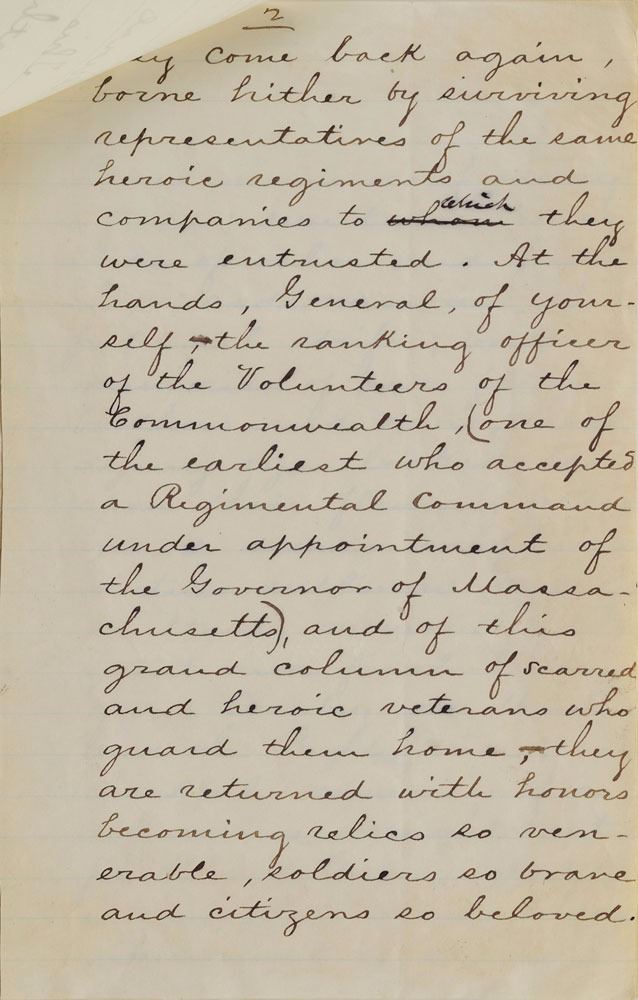 2
come back again,
borne hither by surviving
representatives of the same
heroic regiments and
companies to whom which they
were entrusted. At the
hands, General, of your-
self, - the ranking officer
of the Volunteers of the
Commonwealth, (one of
the earliest who accepted
a Regimental Command
under appointment of
the Governor of Massa-
chusetts), and of this
grand column of scarred
and heroic veterans who
guard them home, - they
are returned with honors
becoming relics so ven-
erable, soldiers so brave
and citizens so beloved.